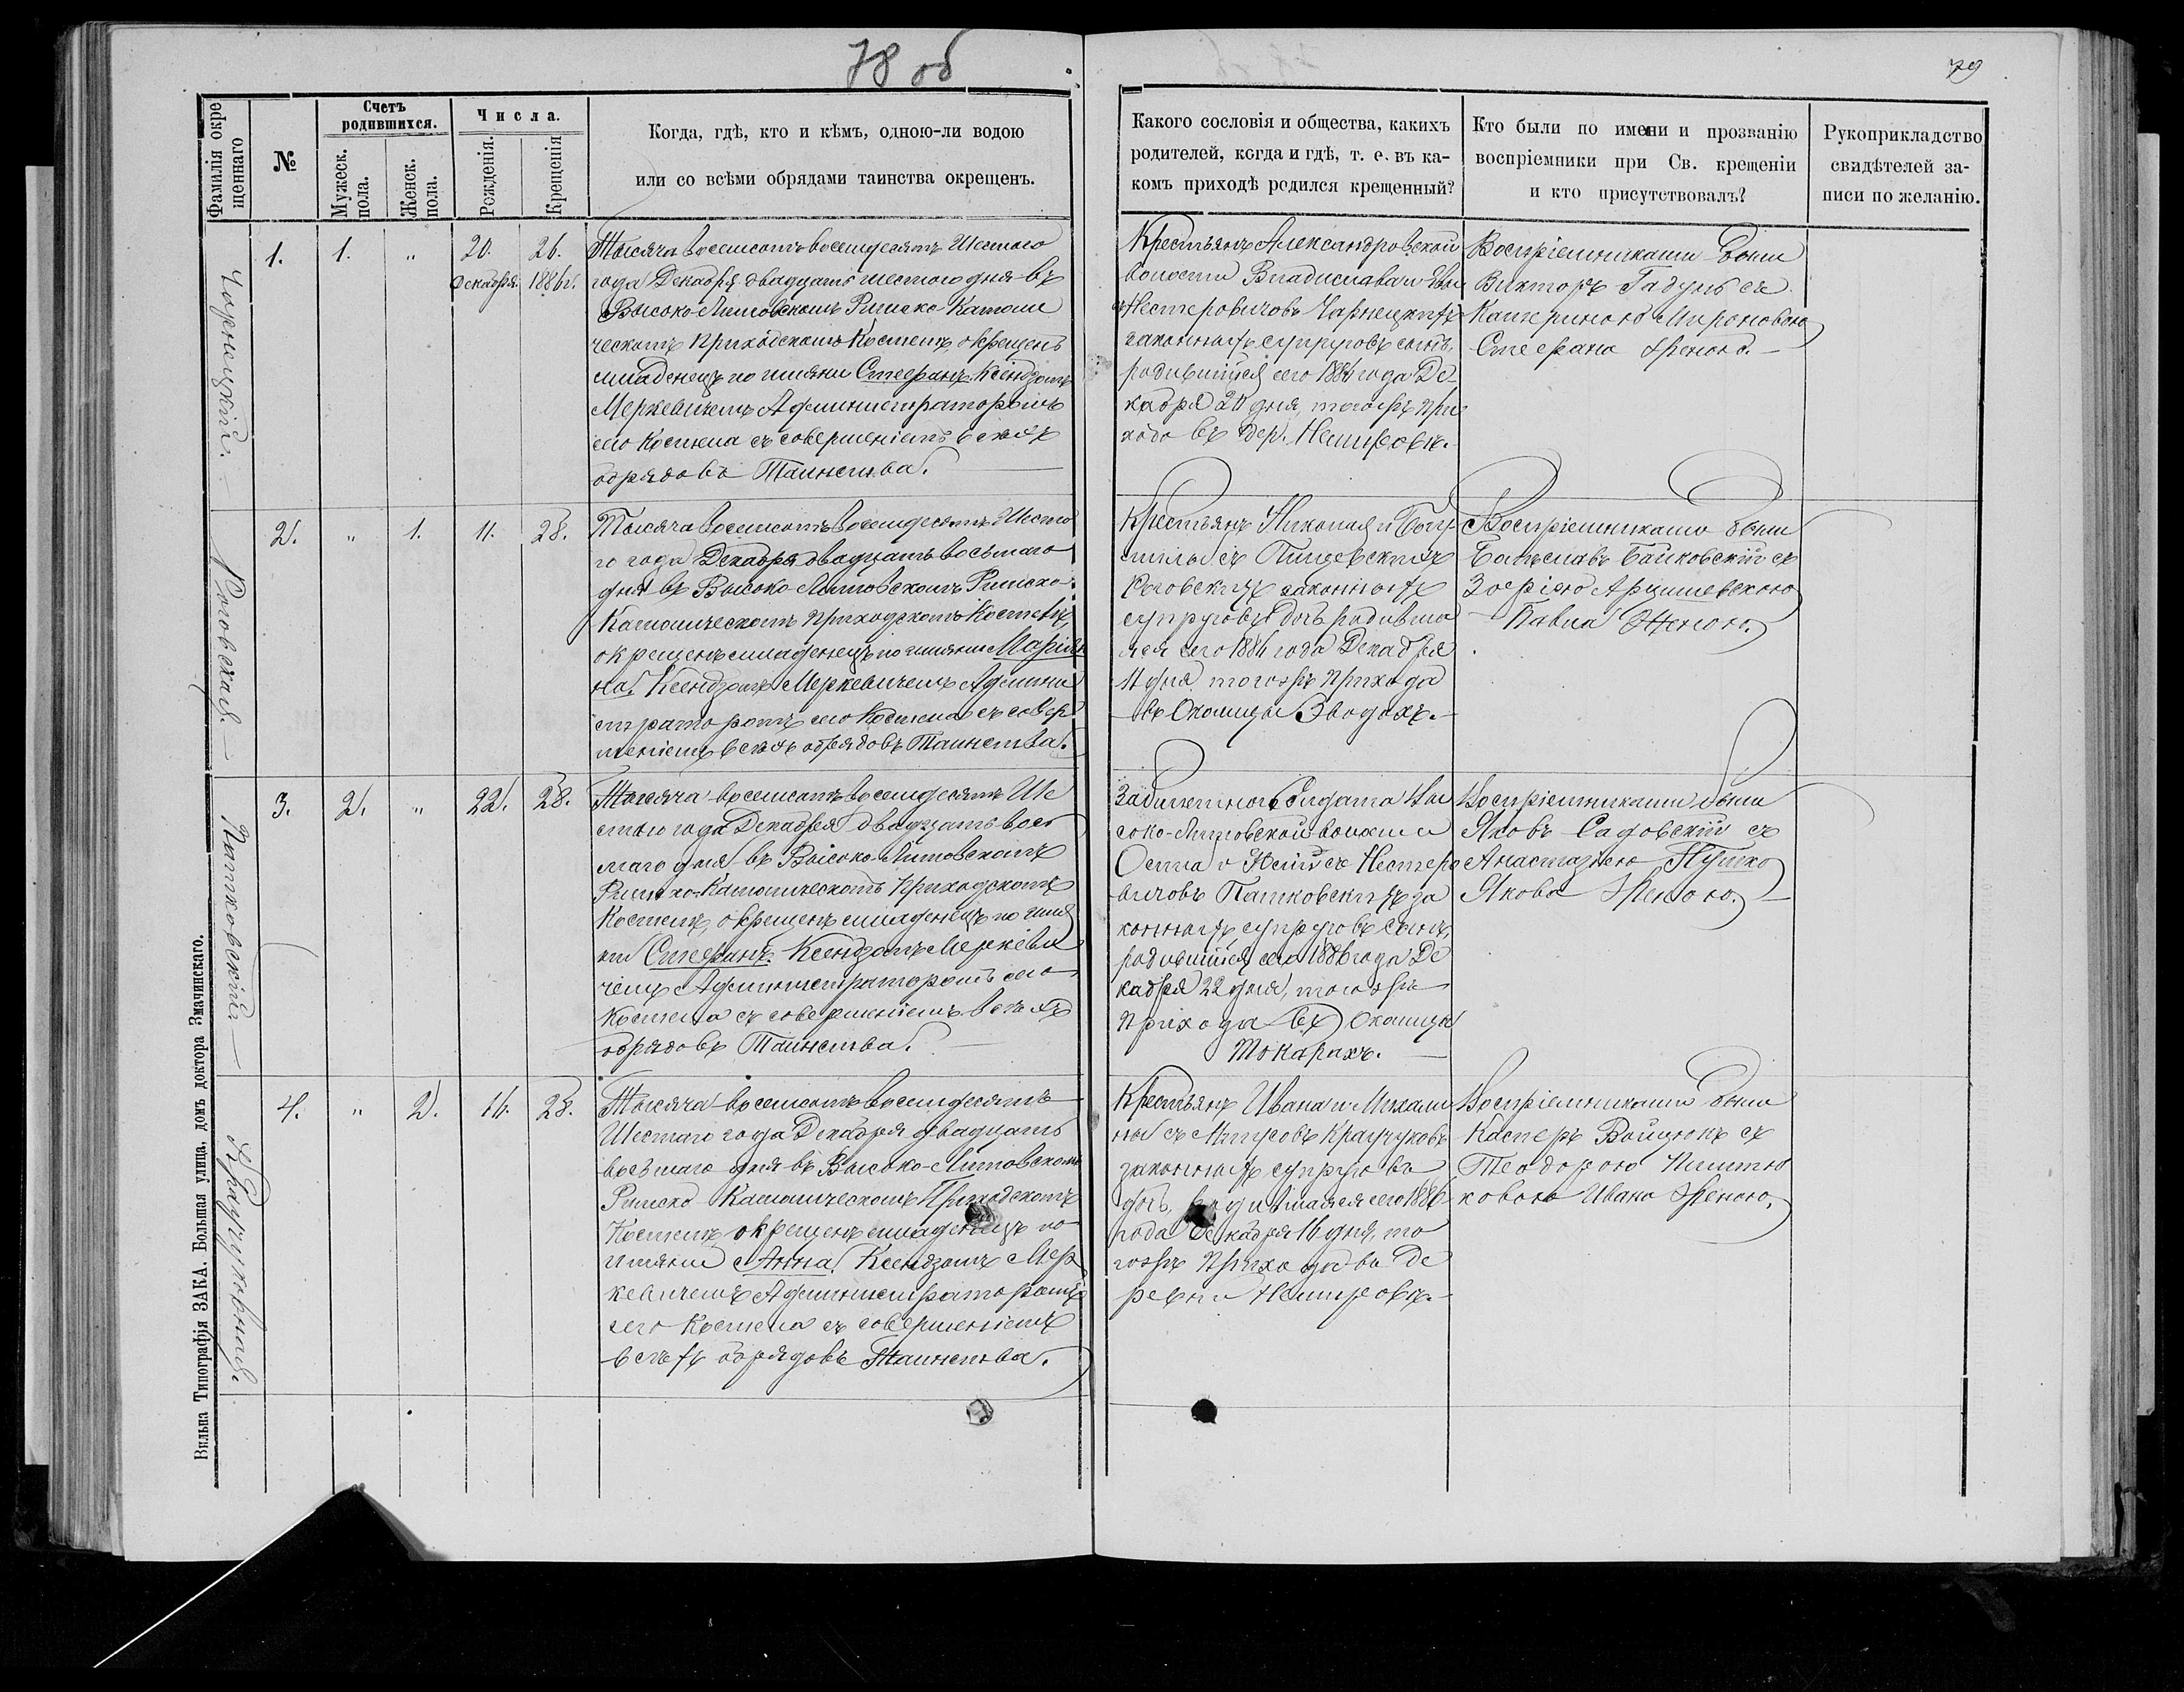 78 об
79
Фамилія окре
щеннаго
№
Счетъ
родившихся.
Мужеск.
пола.
Женск.
пола.
Числа.
Рожденія.
Крещенія
Когда, гдѣ, кто и кѣмъ, одною-ли водою
или со всѣми обрядами таинства окрещенъ.
Какого сословія и общества, какихъ
родителей, когда и гдѣ, т. е. въ ка-
комъ приходѣ родился крещенный?
Кто были по имени и прозванію
воспріемники при Св. крещеніи
и кто присутствовалъ?
Рукоприкладство
свидѣтелей за-
писи по желанію.
Чарнецкій.
1.
1.
"
20.
Декабря.
26.
1886 г.
Тысяча восемсотъ восемдесятъ Шестого
года Декабря двадцать шестого дня въ
Высоко-Литовскомъ Римско-Католи
ческомъ приходскомъ Костелѣ, окрещенъ
младенецъ по имяни Стефанъ, Ксендзомъ
Меркевичемъ Администраторомъ
сего Костела съ совершеніемъ всѣхъ
обрядовъ Таинства.
Крестьянъ Александровской
волости Владислава и Евы
съ Нестеровичовъ Чарнецкихъ
законныхъ супруговъ сынъ,
родившійся сего 1886 года Де-
кабря 20 дня, тогожъ При
хода въ дер. Немировкѣ.
Воспріемниками были
Викторъ Гадунъ съ
Катериною Мироновою
Стефана Женою.
Роговская.
2.
"
1.
11.
28.
Тысяча восемсотъ восемдесятъ Шесто
го года Декабря двадцать восьмаго
дня въ Высоко-Литовскомъ Римско
Католическомъ приходскомъ Костелѣ,
окрещенъ младенецъ по имяни Маріан
на, Ксендзомъ Меркевичемъ Админи
страторомъ сего Костела съ совер
шеніемъ всѣхъ обрядовъ Таинства.
Крестьянъ Николая и Богу-
милы съ Пищевскихъ
Роговскихъ законныхъ
супруговъ дочь родивша
яся сего 1886 года Декабря
11 дня тогожъ прихода
въ Околицы Зводахъ.
Воспріемниками были
Болеславъ Байковскій съ
Зофіею Арцишевскою
Павла Женою.
Патковскій
3.
2.
"
22.
28.
Тысяча восемсотъ восемдесятъ Ше
стого года Декабря двадцать вось
маго дня въ Высоко-Литовскомъ
Римско-Католическомъ Приходскомъ
Костелѣ, окрещенъ младенецъ по имя
ни Стефанъ, Ксендзомъ Меркеви
чемъ Администраторомъ сего
Костела съ совершеніемъ всѣхъ
обрядовъ Таинства.
Забилетного Солдата Вы
соко-Литовской волости
Осипа и съ Нестеро
вичовъ Патковскихъ за
конныхъ супруговъ сынъ,
родившійся сего 1886 года Де
кабря 22 дня, тогожъ
прихода въ Околицы
Токарахъ.
Воспріемниками были
Яковъ Садовскій съ
Анастазіею
Якова Женою.
Кравчуковная.
4.
"
2.
16.
28.
Тысяча восемсотъ восемдесятъ
Шестаго года Декабря двадцать
восьмаго дня въ Высоко-Литовскомъ
Римско Католическомъ Приходскомъ
Костелѣ окрещенъ младенецъ по
имяни Анна, Ксендзомъ Мер
кевичемъ Администраторомъ
сего Костела съ совершеніемъ
всѣхъ обрядовъ Таинства.
Крестьянъ Ивана и Михали
ны съ Кравчуковъ
законныхъ супруговъ
дочь, родившаяся сего 1886
года Декабря 16 дня, то
гожъ Прихода въ Де
ревни Немировкѣ.
Воспріемниками были
Касперъ Войцюкъ съ
Теодорою
Ивана Женою.
Вильна Типографія ЗАКА. Большая улица, домъ доктора Змачинскаго.